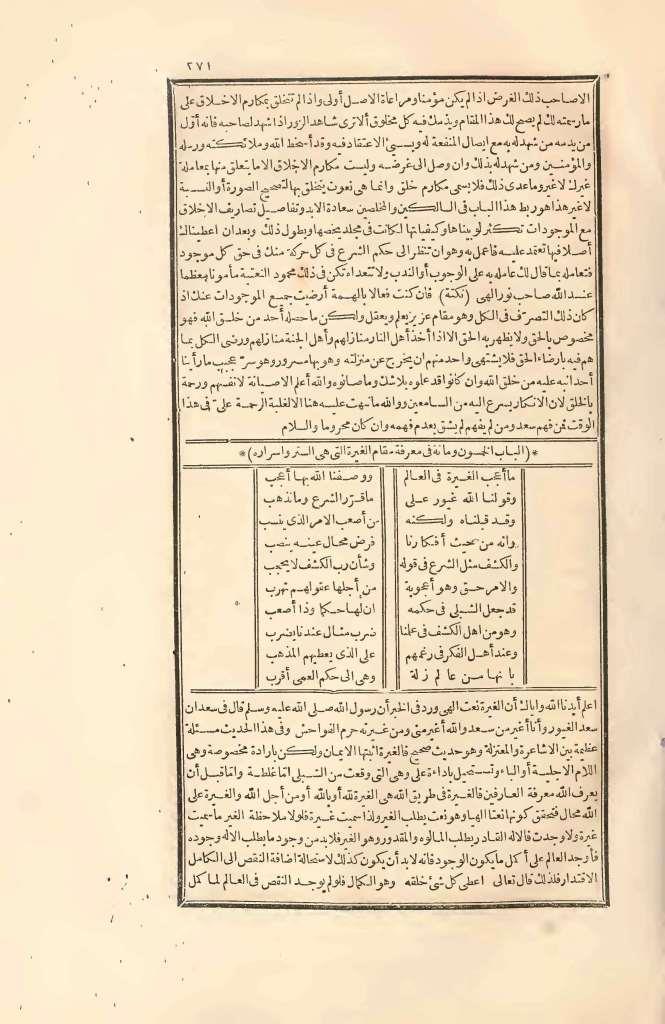 ٢٧١
الاصاحب ذلك الغرض اذا لم يكن مؤمنا ومراعاة الاصل أولى واذا لم تتخلق بمكارم الاخلاق على
مارسمته لك لم يصح لك هذا المقام ويذمك فيه كل مخلوق ألا ترى شاهد الزور اذا شهد لصاحبه فانه أول
من يذمه من شهد له به مع ايصال المنفعة له ويسيء الاعتقاد فيه وقد أسخط الله وملائكته ورسله
والمؤمنين ومن شهد له بذلك وان وصل الى غرضه وليست مكارم الاخلاق الا ما يتعلق منها بمعاملة
غيرك لا غير وما عدى ذلك فلا يسمى مكارم خلق وانما هى نعوت يتخلق بها لتصحيح الصورة أو النسبة
لا غير هذا هو ربط هذا الباب فى السالكين والمخلصين سعادة الابد وتفاصيل تصاريف الاخلاق
مع الموجودات تكثر لو بيناها وكيفياتها لكانت فى مجلد يخصها ويطول ذلك وبعد ان اعطيناك
أصلا فيها تعتمد عليه فاعمل به وهو ان تنظر الى حكم الشرع فى كل حركة منك فى حق كل موجود
فتعامله بما قال لك عامله به على الوجوب أو الندب ولا تتعداه تكن فى ذلك محمود النعتية مأمونا معظما
عند الله صاحب نور الهى (نكتة) فان كنت فعالا بالهمة أرضيت جميع الموجودات عنك اذ
كان ذلك التصرف فى الكل وهو مقام عزيز يعلم ويعقل ولكن ما حصله أحد من خلق الله فهو
مخصوص بالحق ولا يظهر به الحق الا اذا أخذ أهل النار منازلهم وأهل الجنة منازلهم ورضى الكل بما
هم فيه بارضاء الحق فلا يشتهى واحد منهم ان يخرج عن منزلته وهو بها مسرور وهو سر عجيب ما رأينا
أحدا نبه عليه من خلق الله وان كانوا قد علموه بلا شك وما صانوه والله أعلم الا صيانة لانفسهم ورحمة
بالخلق لان الانكار يسرع اليه من السامعين ووالله ما نبهت عليه هنا الا لغلبة الرحمة على فى هذا
الوقت فمن فهم سعد ومن لم يفهم لم يشق بعدم فهمه وان كان محروما والسلام
*(الباب الخمسون ومائة فى معرفة مقام الغيرة التى هى الستر واسراره)*
ما أعجب الغيرة فى العالم ووصفنا الله بها أعجب
وقولنا الله غيور على ما قرر الشرع وما نذهب
وقد قبلناه ولكنه من أصعب الامر الذى ينسب
وانه من حيث أفكارنا فرض محال عينه ينصب
والكشف مثل الشرع فى قوله وشأن رب الكشف لا يحجب
والامر حق وهو أعجوبة من أجلها عقولهم تهرب
قد جعل الشبلى فى حكمه ان لها حكما وذا أصعب
وهو من اهل الكشف فى علمنا ضرب مثال عندنا يضرب
وعند أهل الفكر فى زعمهم على الذى يعطيهم المذهب
بانها من عالم زلة وهى الى حكم العمى أقرب
اعلم أيدنا الله واياك أن الغيرة نعت الهى ورد فى الخبر أن رسول الله صلى الله عليه وسلم قال فى سعد ان
سعد الغيور وأنا أغير من سعد والله أغير منى ومن غيرته حرم الفواحش وفى هذا الحديث مسئلة
عظيمة بين الاشاعرة والمعتزلة وهو حديث صحيح فالغيرة اثبتها الايمان ولكن باداة مخصوصة وهى
اللام الاجلية أو الباء وتستحيل باداة على وهى التى وقعت من الشبلى اما غلطة واما قبل أن
يعرف الله معرفة العارفين فالغيرة فى طريق الله هى الغيرة لله أو بالله أو من أجل الله والغيرة على
الله محال فتحقق كونها نعتا الهيا وهو نعت يطلب الغير ولذا سميت غيرة فلولا ملاحظة الغير ما سميت
غيرة ولا وجدت فالاله القادر يطلب المألوه والمقدور وهو الغير فلا بد من وجود ما يطلب الاله وجوده
فأوجد العالم على أكمل ما يكون الوجود فانه لا بد أن يكون كذلك لاستحالة اضافة النقص الى الكامل
الاقتدار فلذلك قال تعالى اعطى كل شئ خلقه وهو الكمال فلو لم يوجد النقص فى العالم لما كمل